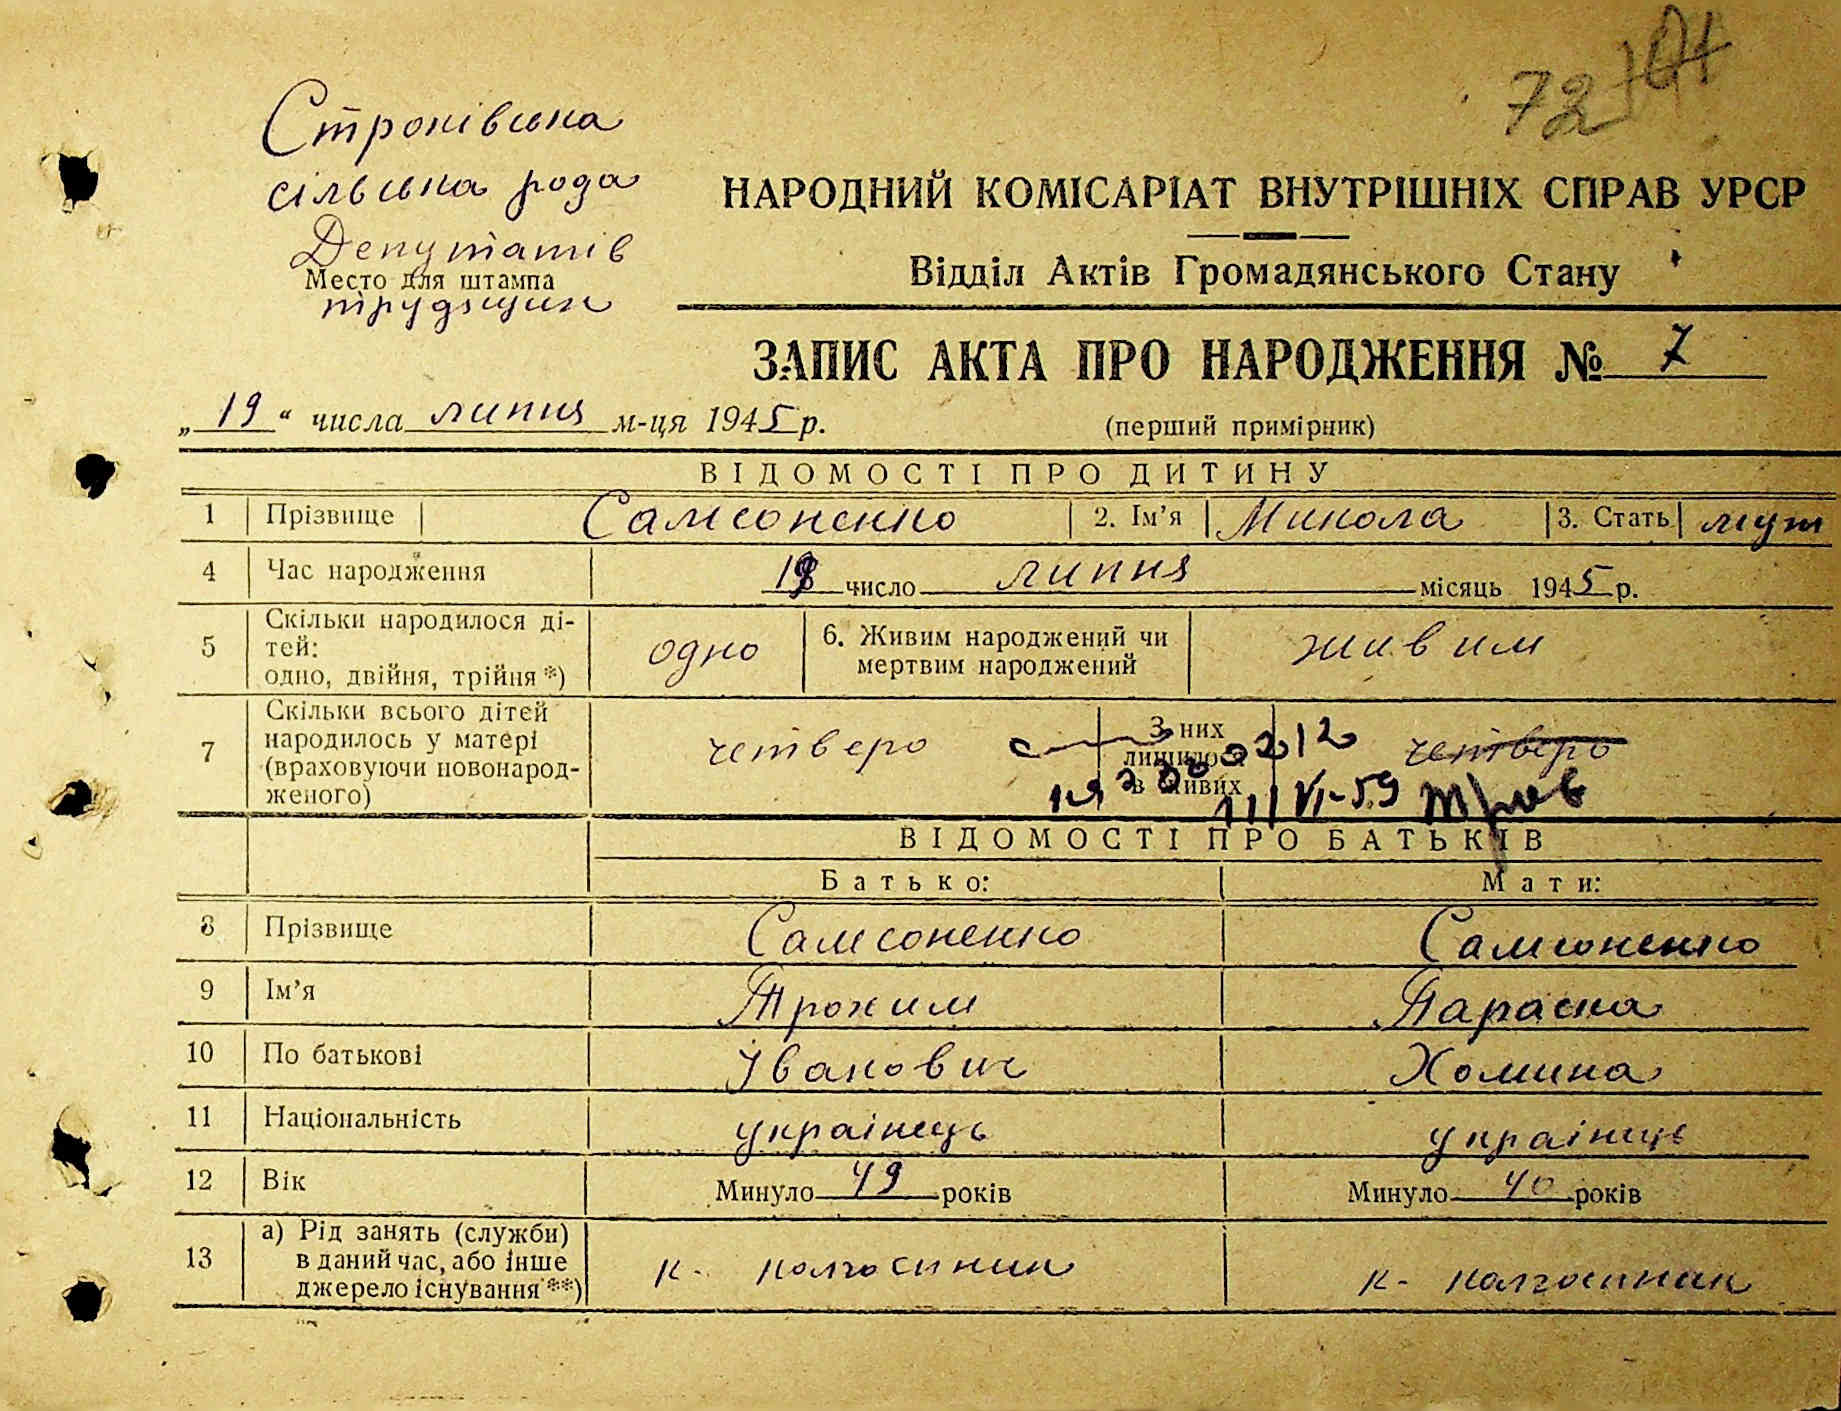 72
Строківська
сільська рада
Депутатів
Место для штампа
трудящих
НАРОДНИЙ КОМІСАРІАТ ВНУТРІШНІХ СПРАВ УРСР
Відділ Актів Громадянського Стану
ЗАПИС АКТА ПРО НАРОДЖЕННЯ № 7
„19“ числа липня м-ця 1945 р. (перший примірник)
ВІДОМОСТІ ПРО ДИТИНУ
1 Прізвище Самсоненко 2. Ім’я Микола 3. Стать муж
4 Час народження 18 число липня місяць 1945 р.
5 Скільки народилося ді-
тей:
одно, двійня, трійня *) одно 6. Живим народжений чи
мертвим народжений живим
7 Скільки всього дітей
народилось у матері
(враховуючи новонарод-
женого) четверо З них
лишилося
в живих четверо
VI-59
ВІДОМОСТІ ПРО БАТЬКІВ
Батько: Мати:
8 Прізвище Самсоненко Самсоненко
9 Ім’я Трохим Параска
10 По батькові Іванович Хомина
11 Національність українець українць
12 Вік Минуло 49 років Минуло 40 років
13 а) Рід занять (служби)
в даний час, або інше
джерело існування **) к- колгоспник к- колгоспник